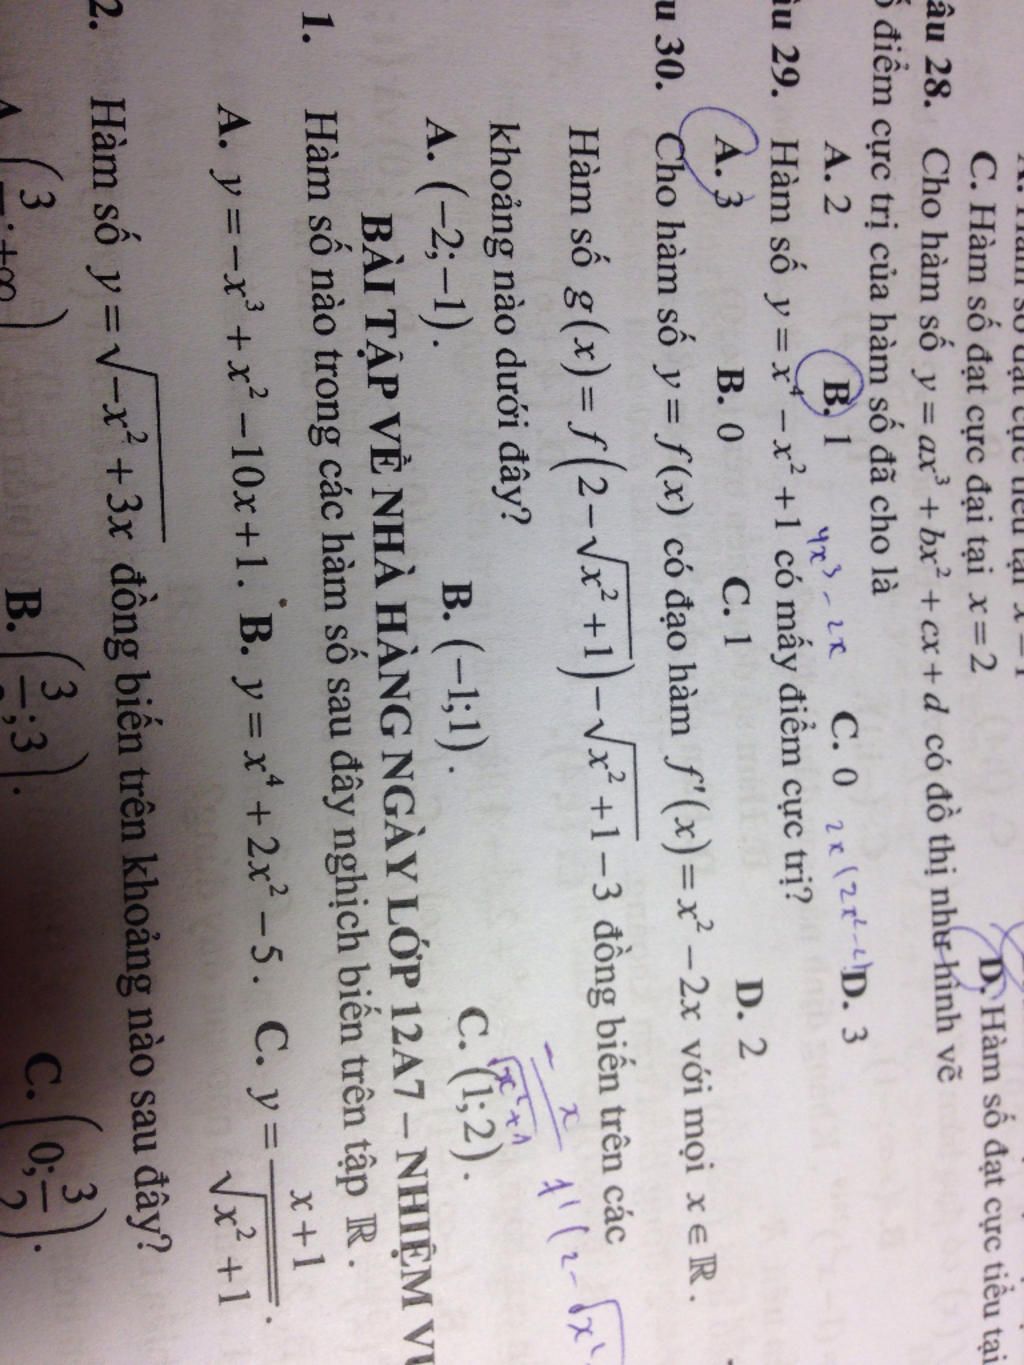 C. Hàm số đạt cực đại tại x = 2 D. Hàm số đạt cực tiểu tại
âu 28. Cho hàm số y = ax³ + bx² + cx + d có đồ thị như hình vẽ
ố điểm cực trị của hàm số đã cho là
A. 2 B. 1 C. 0 D. 3
4x³ - 2x 2x(2x²-1)
âu 29. Hàm số y = x⁴ - x² + 1 có mấy điểm cực trị?
A. 3 B. 0 C. 1 D. 2
u 30. Cho hàm số y = f(x) có đạo hàm f'(x) = x² - 2x với mọi x ∈ ℝ.
Hàm số g(x) = f(2 - √(x² + 1)) - √(x² + 1) - 3 đồng biến trên các
khoảng nào dưới đây?
- x/√(x²+1) f'(2 - √x²
A. (-2; -1). B. (-1;1). C. (1;2).
BÀI TẬP VỀ NHÀ HÀNG NGÀY LỚP 12A7 – NHIỆM VỤ
1. Hàm số nào trong các hàm số sau đây nghịch biến trên tập ℝ.
A. y = -x³ + x² - 10x + 1. B. y = x⁴ + 2x² - 5. C. y = (x + 1)/√(x² + 1).
2. Hàm số y = √(-x² + 3x) đồng biến trên khoảng nào sau đây?
A. (3/ ; +∞) B. (3/2; 3). C. (0; 3/2).